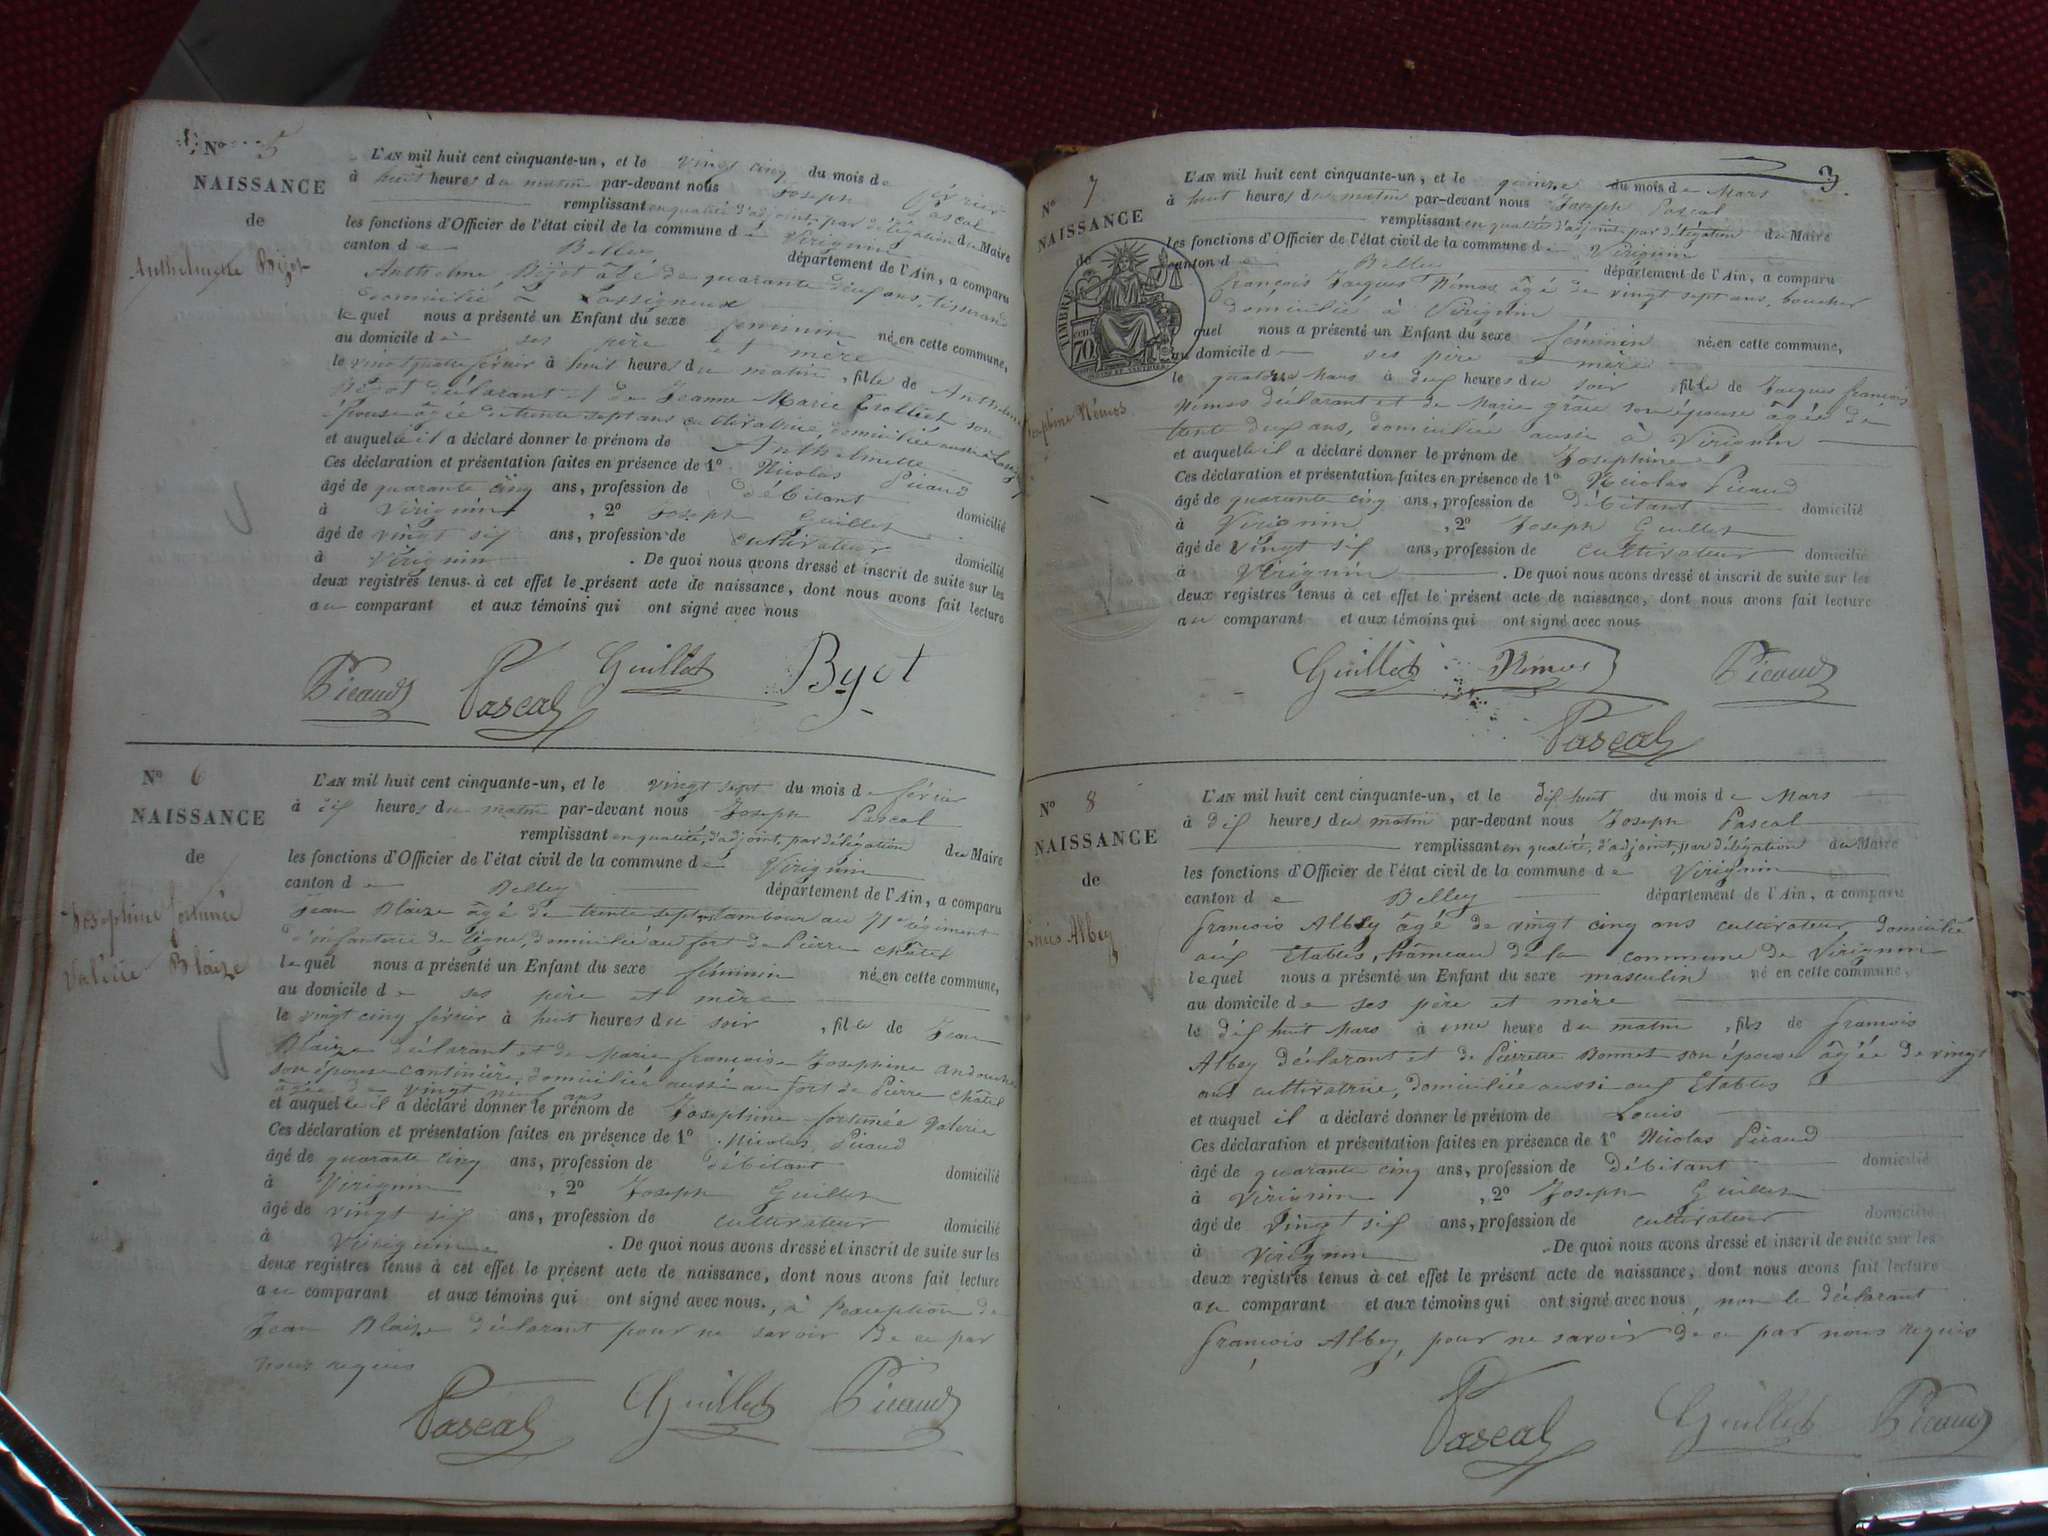 N° 5
NAISSANCE
de
Anthelmette Bijot
L'AN mil huit cent cinquante-un, et le vingt cinq du mois de février
à huit heures du matin par-devant nous Joseph Pascal
remplissant en qualité d'adjoint par délégation du Maire
les fonctions d'Officier de l'état civil de la commune de Virignin
canton de Belley département de l'Ain, a comparu
Anthelme Bijot âgé de quarante deux ans, tisserand
domicilié à Lassigneux
lequel nous a présenté un Enfant du sexe féminin né en cette commune,
au domicile de ses père et mère
le vingt quatre février à huit heures du matin, fille de Anthelme
Bijot déclarant et de Jeanne Marie Trolliet son
épouse âgée de trente sept ans cultivatrice, domiciliée aussi à
et auquelle il a déclaré donner le prénom de Anthelmette
Ces déclaration et présentation faites en présence de 1° Nicolas Picaud
âgé de quarante cinq ans, profession de débitant domicilié
à Virignin, 2° Joseph Guillet
âgé de vingt six ans, profession de cultivateur domicilié
à Virignin. De quoi nous avons dressé et inscrit de suite sur les
deux registres tenus à cet effet le présent acte de naissance, dont nous avons fait lecture
au comparant et aux témoins qui ont signé avec nous
Picaud Pascal Guillet Byot
N° 6
NAISSANCE
de
Josephine fortunée
Valérie Blaize
L'AN mil huit cent cinquante-un, et le vingt sept du mois de février
à dix heures du matin par-devant nous Joseph Pascal
remplissant en qualité, d'adjoint, par délégation du Maire
les fonctions d'Officier de l'état civil de la commune de Virignin
canton de Belley département de l'Ain, a comparu
Jean Blaize âgé de trente sept ans tambour au 71e régiment
d'infanterie de ligne, domicilié au fort de Pierre Châtel
lequel nous a présenté un Enfant du sexe féminin né en cette commune,
au domicile de ses père et mère
le vingt cinq février à huit heures du soir, fille de Jean
Blaize déclarant et de Marie françoise Josephine
son épouse cantinière, domiciliée aussi au fort de Pierre Châtel
âgée de vingt neuf ans
et auquelle il a déclaré donner le prénom de Josephine fortunée Valerie
Ces déclaration et présentation faites en présence de 1° Nicolas Picaud
âgé de quarante cinq ans, profession de débitant domicilié
à Virignin, 2° Joseph Guillet
âgé de vingt six ans, profession de cultivateur domicilié
à Virignin. De quoi nous avons dressé et inscrit de suite sur les
deux registres tenus à cet effet le présent acte de naissance, dont nous avons fait lecture
au comparant et aux témoins qui ont signé avec nous, à l'exception de
Jean Blaize déclarant pour ne savoir de ce par
nous requis
Pascal Guillet Picaud
3.
N° 7
NAISSANCE
de
TIMBRE
70
Josephine Némos
L'AN mil huit cent cinquante-un, et le quinze du mois de Mars
à huit heures du matin par-devant nous Joseph Pascal
remplissant en qualité d'adjoint par délégation du Maire
les fonctions d'Officier de l'état civil de la commune de Virignin
canton de Belley département de l'Ain, a comparu
françois Jacques Némos âgé de vingt sept ans, boucher
domicilié à Virignin
quel nous a présenté un Enfant du sexe féminin né en cette commune,
au domicile de ses père et mère
le quatorze Mars à deux heures du soir, fille de Jacques françois
Némos déclarant et de Marie grâce son épouse âgée de
trente deux ans, domiciliée aussi à Virignin
et auquelle il a déclaré donner le prénom de Josephine
Ces déclaration et présentation faites en présence de 1° Nicolas Picaud
âgé de quarante cinq ans, profession de débitant domicilié
à Virignin, 2° Joseph Guillet
âgé de vingt six ans, profession de cultivateur domicilié
à Virignin. De quoi nous avons dressé et inscrit de suite sur les
deux registres tenus à cet effet le présent acte de naissance, dont nous avons fait lecture
au comparant et aux témoins qui ont signé avec nous
Guillet Némos Picaud
Pascal
N° 8
NAISSANCE
de
Louis Albey
L'AN mil huit cent cinquante-un, et le dix huit du mois de Mars
à dix heures du matin par-devant nous Joseph Pascal
remplissant en qualité, d'adjoint, par délégation du Maire
les fonctions d'Officier de l'état civil de la commune de Virignin
canton de Belley département de l'Ain, a comparu
françois Albey âgé de vingt cinq ans cultivateur domicilié
aux Etables, hâmeau de la commune de Virignin
lequel nous a présenté un Enfant du sexe masculin né en cette commune,
au domicile de ses père et mère
le dix huit Mars à une heure du matin, fils de françois
Albey déclarant et de Pierrette Bonnet son épouse âgée de vingt
ans cultivatrice, domiciliée aussi aux Etables
et auquel il a déclaré donner le prénom de Louis
Ces déclaration et présentation faites en présence de 1° Nicolas Picaud
âgé de quarante cinq ans, profession de débitant domicilié
à Virignin, 2° Joseph Guillet
âgé de vingt six ans, profession de cultivateur domicilié
à Virignin. De quoi nous avons dressé et inscrit de suite sur les
deux registres tenus à cet effet le présent acte de naissance, dont nous avons fait lecture
au comparant et aux témoins qui ont signé avec nous, non le déclarant
françois Albey, pour ne savoir de ce par nous requis
Pascal Guillet Picaud